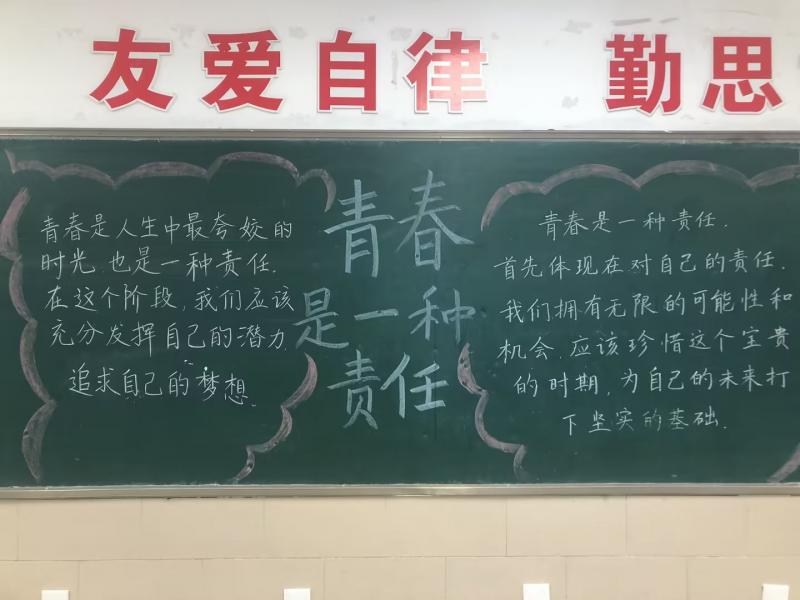 友爱自律 勤思
青春是人生中最夸姣的
时光.也是一种责任.
在这个阶段,我们应该
充分发挥自己的潜力
追求自己的梦想.
青春
是一种
责任
青春是一种责任.
首先体现在对自己的责任.
我们拥有无限的可能性和
机会.应该珍惜这个宝贵
的时期,为自己的未来打
下坚实的基础.